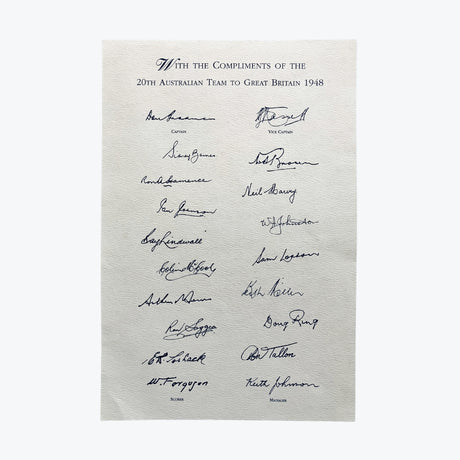 WITH THE COMPLIMENTS OF THE
20TH AUSTRALIAN TEAM TO GREAT BRITAIN 1948
Don Bradman
CAPTAIN
Barnes
Ron A Hamence
Ian Johnson
Ray Lindwall
Colin McCool
Arthur Morris
Ron Saggers
E.R. Toshack
W. Ferguson
SCORER
VICE CAPTAIN
Brown
Neil Harvey
W Johnston
Sam Loxton
Keith Miller
Doug Ring
Don Tallon
Keith Johnson
MANAGER